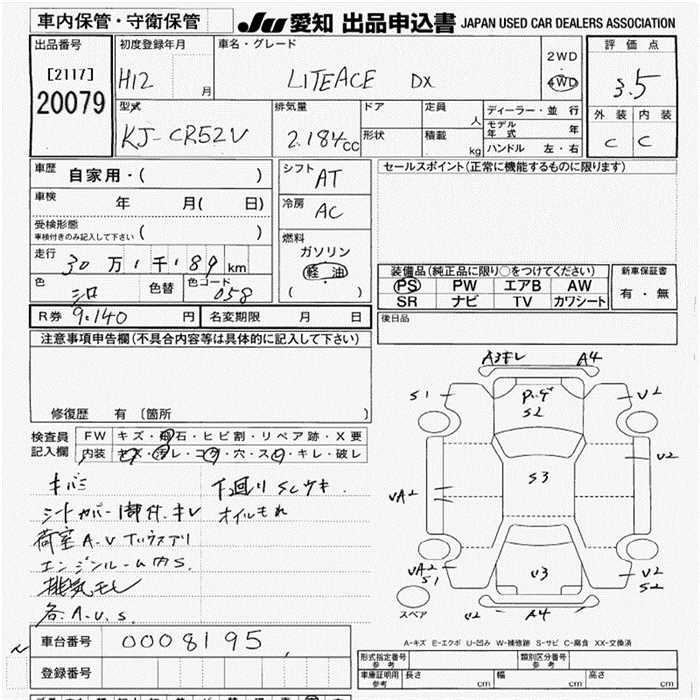 車内保管・守衛保管
JU 愛知 出品申込書 JAPAN USED CAR DEALERS ASSOCIATION
出品番号
[2117]
20079
初度登録年月
H12 月
車名・グレード
LITEACE DX
2WD
4WD
評価点
3.5
外装 内装
C C
型式
KJ-CR52V
排気量
2.184cc
ドア
形状
定員
人
積載
kg
ディーラー・並行
モデル年式 年
ハンドル 左・右
車歴
自家用・( )
車検
年 月( 日)
受検形態
車検付きのみ記入して下さい ( )
走行
30万1千189km
色
シロ
色替
色コード
058
シフト
AT
冷房
AC
燃料
ガソリン
軽油
( )
セールスポイント(正常に機能するものに限ります)
装備品(純正品に限り○をつけてください)
PS PW エアB AW
SR ナビ TV カワシート
新車保証書
有・無
後日品
R券 9.140 円
名変期限 月 日
注意事項申告欄(不具合内容等は具体的に記入して下さい)
修復歴 有 〔箇所 〕
検査員
記入欄
FW キズ・飛石・ヒビ割・リペア跡・X要
内装 キズ・汚レ・コゲ・穴・スレ・キレ・破レ
キバミ
シートカバー1部付.キレ
荷室A.V
エンジンルーム内S.
排気モレ
各.A.U.S.
下廻りSCサキ.
オイルもれ
A3キレ A4
S1
P.ゲ
S2
U2
U2
S3
UA2
UA2
S1
U3
U2
S2
スペア
U2 A4
A-キズ E-エクボ U-凹み W-補修跡 S-サビ C-腐食 XX-交換済
車台番号
0008195
登録番号
形式指定番号
参考
類別区分番号
参考
車庫証明用
参考
長さ cm
幅 cm
高さ cm